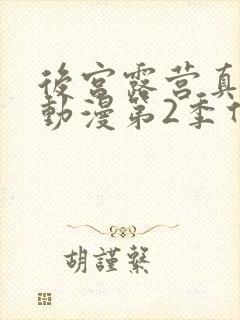 後宮露营真
動漫第2季
胡謹繄